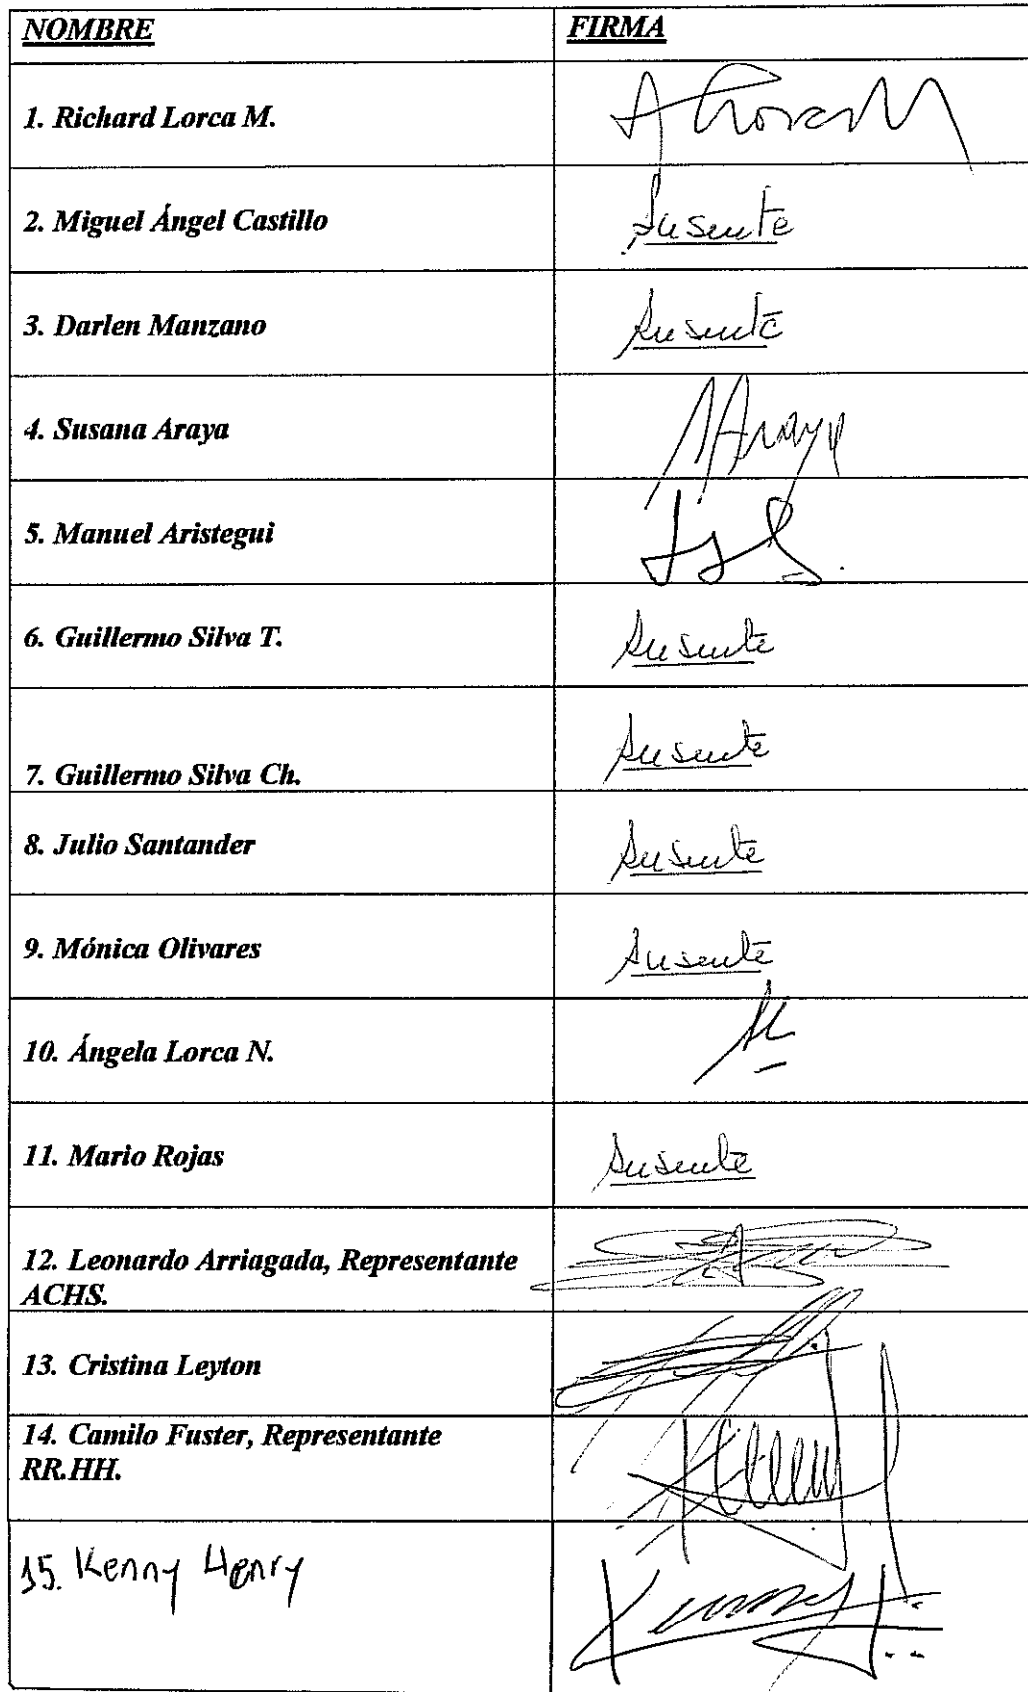 NOMBRE FIRMA
1. Richard Lorca M.
2. Miguel Ángel Castillo Ausente
3. Darlen Manzano Ausente
4. Susana Araya Araya
5. Manuel Aristegui
6. Guillermo Silva T. Ausente
7. Guillermo Silva Ch. Ausente
8. Julio Santander Ausente
9. Mónica Olivares Ausente
10. Ángela Lorca N.
11. Mario Rojas Ausente
12. Leonardo Arriagada, Representante
ACHS.
13. Cristina Leyton
14. Camilo Fuster, Representante
RR.HH.
15. Kenny Henry